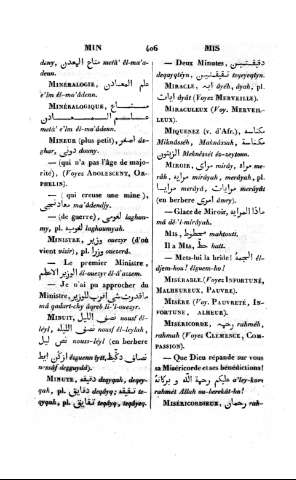 MIN 406 MIS
deny, متاع المعدن metâ' êl-ma'a-
denn.
MINÉRALOGIE, علم المعادن
e'lm êl-ma'âdenn.
MINÉRALOGIQUE, متاع
علم المعادن
metâ' e'lm êl-ma'âdenn.
MINEUR (plus petit), اصغر as-
ghar, دوني douny.
— (qui n'a pas l'âge de majo-
rité), (Voyez ADOLESCENT, OR-
PHELIN).
— (qui creuse une mine),
معادنجي ma'âdendjy.
— (de guerre), لغومجي laghoum-
jy, pl. لغومجية laghoumjyah.
MINISTRE, وزير ouezyr (d'où
vient visir), pl. وزرا ouezerâ.
— Le premier Ministre,
الوزير الاعظم êl-ouezyr êl-â'azzem.
— Je n'ai pu approcher du
Ministre, ما قدرت شي اقرب للوزير
mâ qadart-chy âqreb l-êl-ouezyr.
MINUIT, نصف الليل nouss êl-
léyl, نصف الليلة nouss êl-leylah,
نص ليل nouss-léyl (en berbere
MINUTE, دقيقة deqyqah, deqey-
qah, pl. دقايق deqâyq; تقيقة teq-
yqah, pl. تقايق teqâyq, teqâyeq.
— Deux Minutes, دقيقتين
deqayqtéyn, تقيقتين teqeyqetéyn.
MIRACLE, اية âyéh, âyah, pl.
ايات âyât (Voyez MERVEILLE).
MIRACULEUX (Voy. MERVEIL-
LEUX).
MIQUENEZ (v. d'Afr.), مكناسة
Mikndsséh, Maknâssah, مكناسة
الزيتون Meknâsset êz-zeytoun.
MIROIR, مراي mirây, مراية me-
râh, مراية mirâyah, merdyah, pl.
مرايا merâyâ, مرايات merâyât
(en berbere امري êmery).
— Glace de Miroir, ما المراية
mâ dé-'l-mirâyah.
MIS, محطوط mahtoutt.
Il a MIS, حط hatt.
— Mets-lui la bride! الجمه êl-
djem-hou! élguem-ho!
MISÉRABLE. (Voyez INFORTUNÉ,
MALHEUREUX, PAUVRE).
MISÈRE (Voy. PAUVRETÉ, IN-
FORTUNE, ALHEUR).
MISÉRICORDE, رحمة rahméh,
rahmah (Voyez CLEMENCE, COM-
PASSION).
— Que Dieu répande sur vous
sa Miséricorde et ses bénédictions!
عليكم رحمة الله و بركاته a'ley-koum
rahmét Allah ou-berekât-ho!
MISÉRICORDIEUX, رحمان rah-